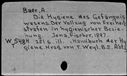 Baer, A.
Die Hygiene des Gefängnis
wesens. Der Vollzug von Freiheits
strafen in hygienischer Bezie
hung. Jena, Fischer, 1897.
251 S. ill. (Handbuch der Hy
giene. Hrsg. von T. Weyl. B.5. Abt.